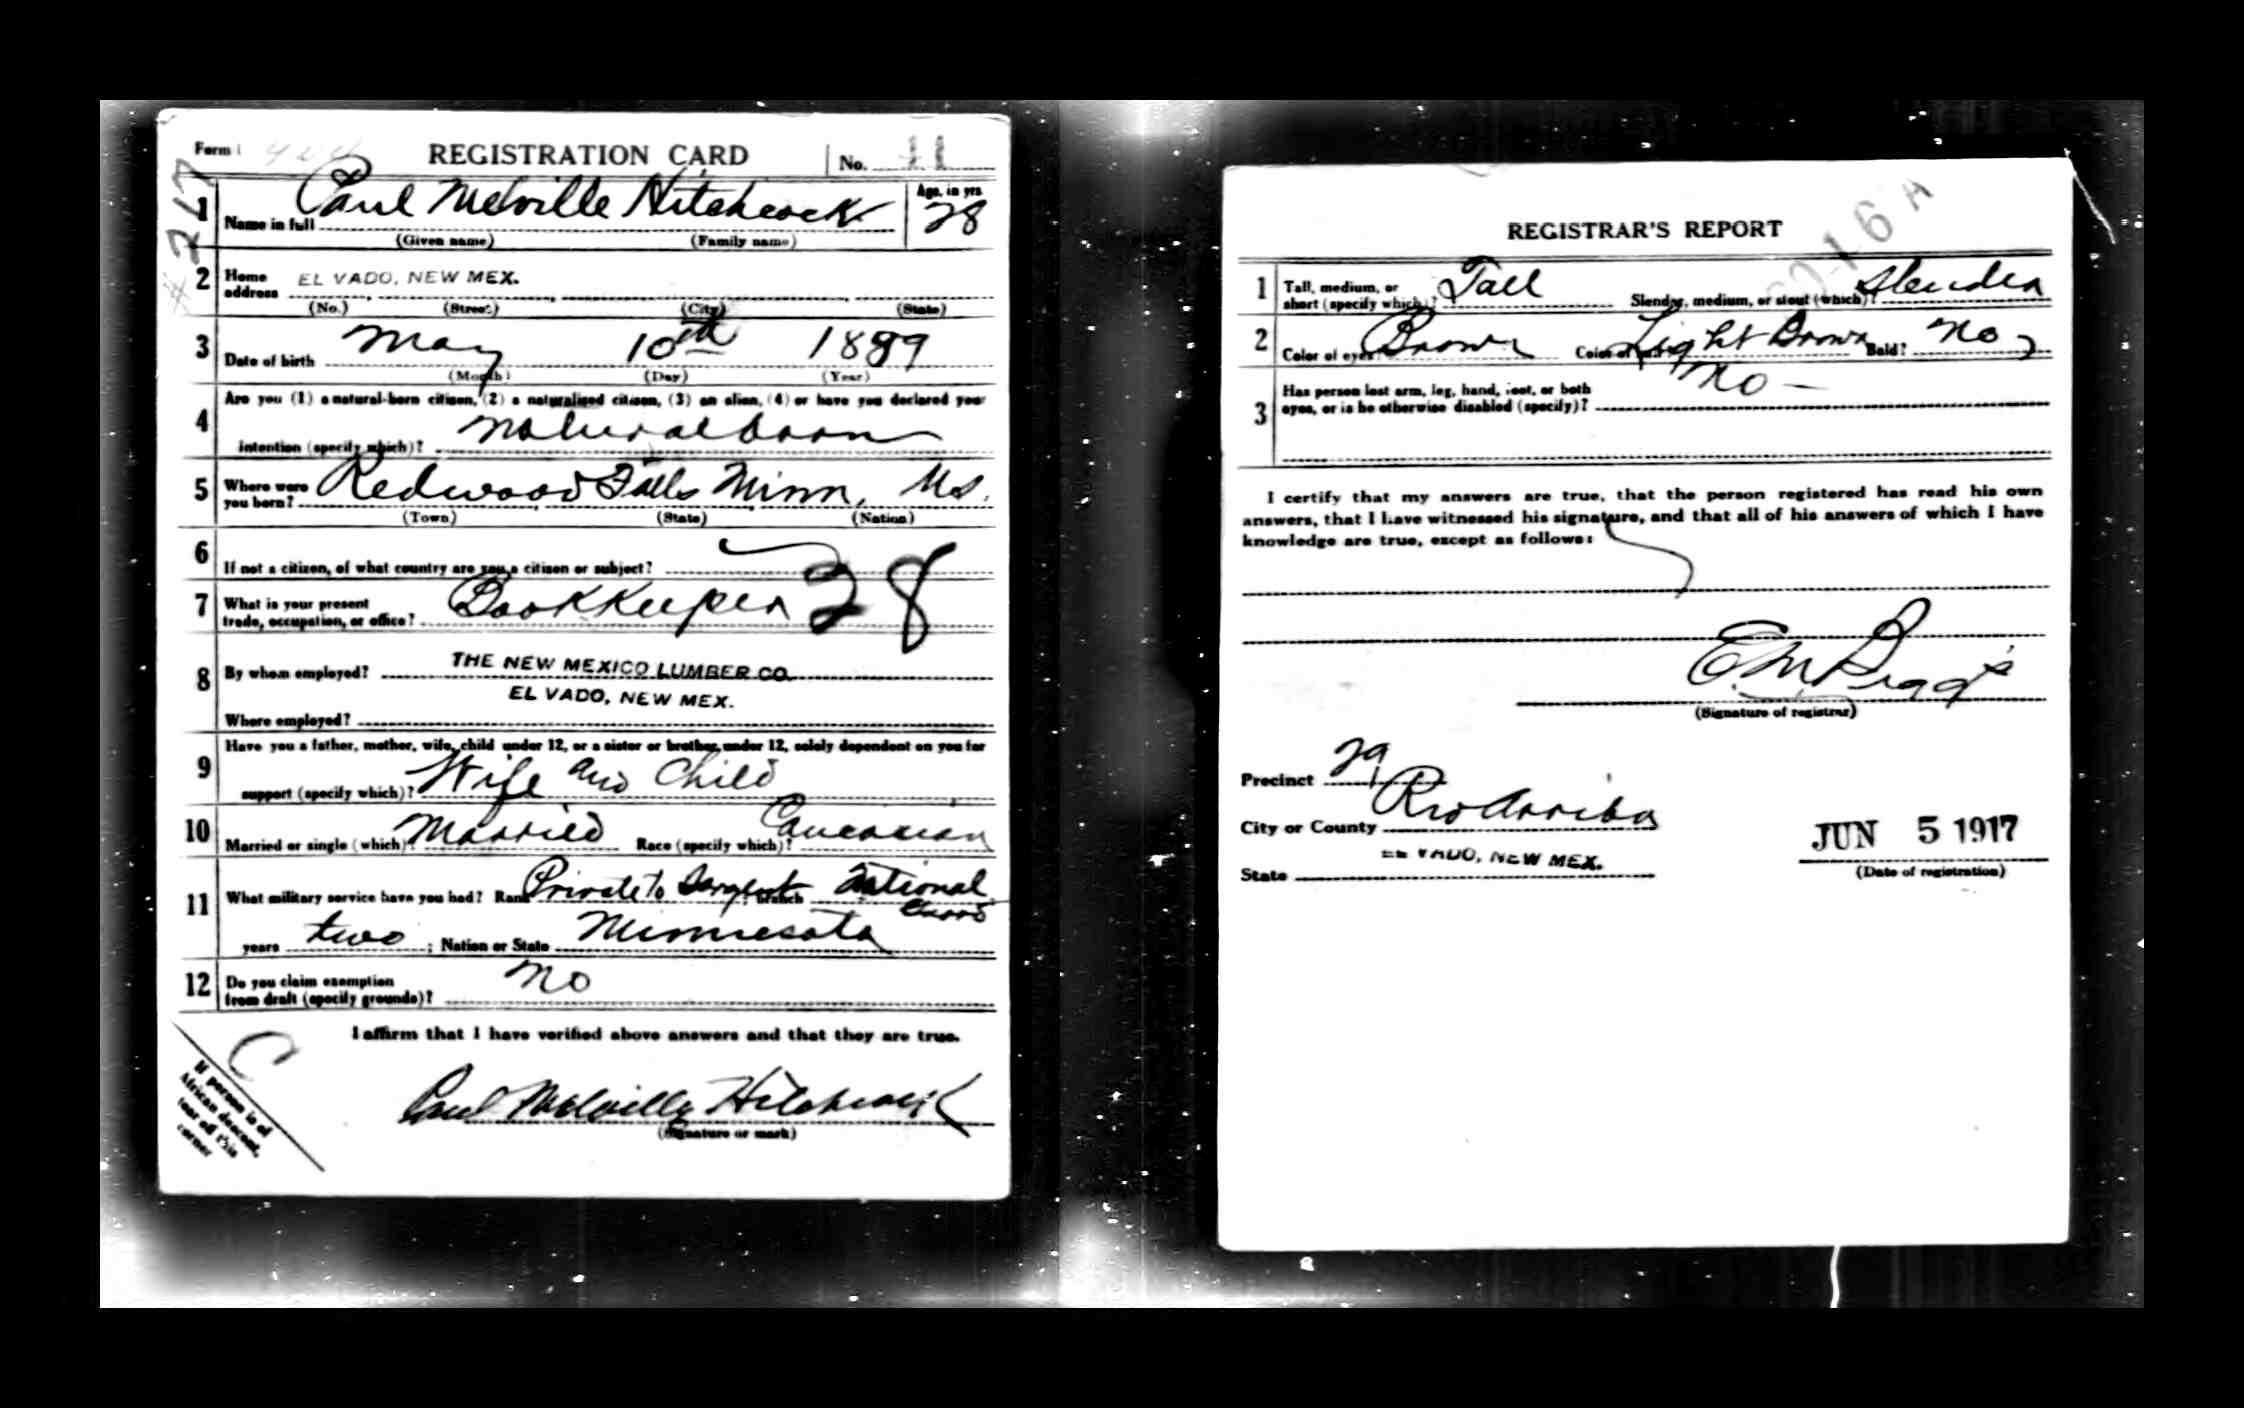 Form 1 REGISTRATION CARD No. 11
# 217
1 Name in full Paul Melville Hitchcock Age, in yrs 28
(Given name) (Family name)
2 Home address EL VADO, NEW MEX.
(No.) (Street) (City) (State)
3 Date of birth May 10th 1889
(Month) (Day) (Year)
4 Are you (1) a natural-born citizen, (2) a naturalized citizen, (3) an alien, (4) or have you declared your
intention (specify which)? Natural born
5 Where were you born? Redwood Falls Minn, US.
(Town) (State) (Nation)
6 If not a citizen, of what country are you a citizen or subject?
7 What is your present trade, occupation, or office? Bookkeeper 28
8 By whom employed? THE NEW MEXICO LUMBER CO.
EL VADO, NEW MEX.
Where employed?
9 Have you a father, mother, wife, child under 12, or a sister or brother under 12, solely dependent on you for
support (specify which)? Wife and Child
10 Married or single (which)? Married Race (specify which)? Caucasian
11 What military service have you had? Rank Private to Sargent branch National Guard
years two ; Nation or State Minnesota
12 Do you claim exemption from draft (specify grounds)? No
I affirm that I have verified above answers and that they are true.
Paul Melville Hitchcock
(Signature or mark)
If person is of
African descent,
tear off this
corner
REGISTRAR'S REPORT
1 Tall, medium, or short (specify which)? Tall Slender, medium, or stout (which)? Slender
2 Color of eyes? Brown Color of hair? Light Brown Bald? No
3 Has person lost arm, leg, hand, foot, or both
eyes, or is he otherwise disabled (specify)? No
I certify that my answers are true, that the person registered has read his own
answers, that I have witnessed his signature, and that all of his answers of which I have
knowledge are true, except as follows:
(Signature of registrar)
Precinct 29
City or County Rio Arriba
State EL VADO, NEW MEX.
JUN 5 1917
(Date of registration)